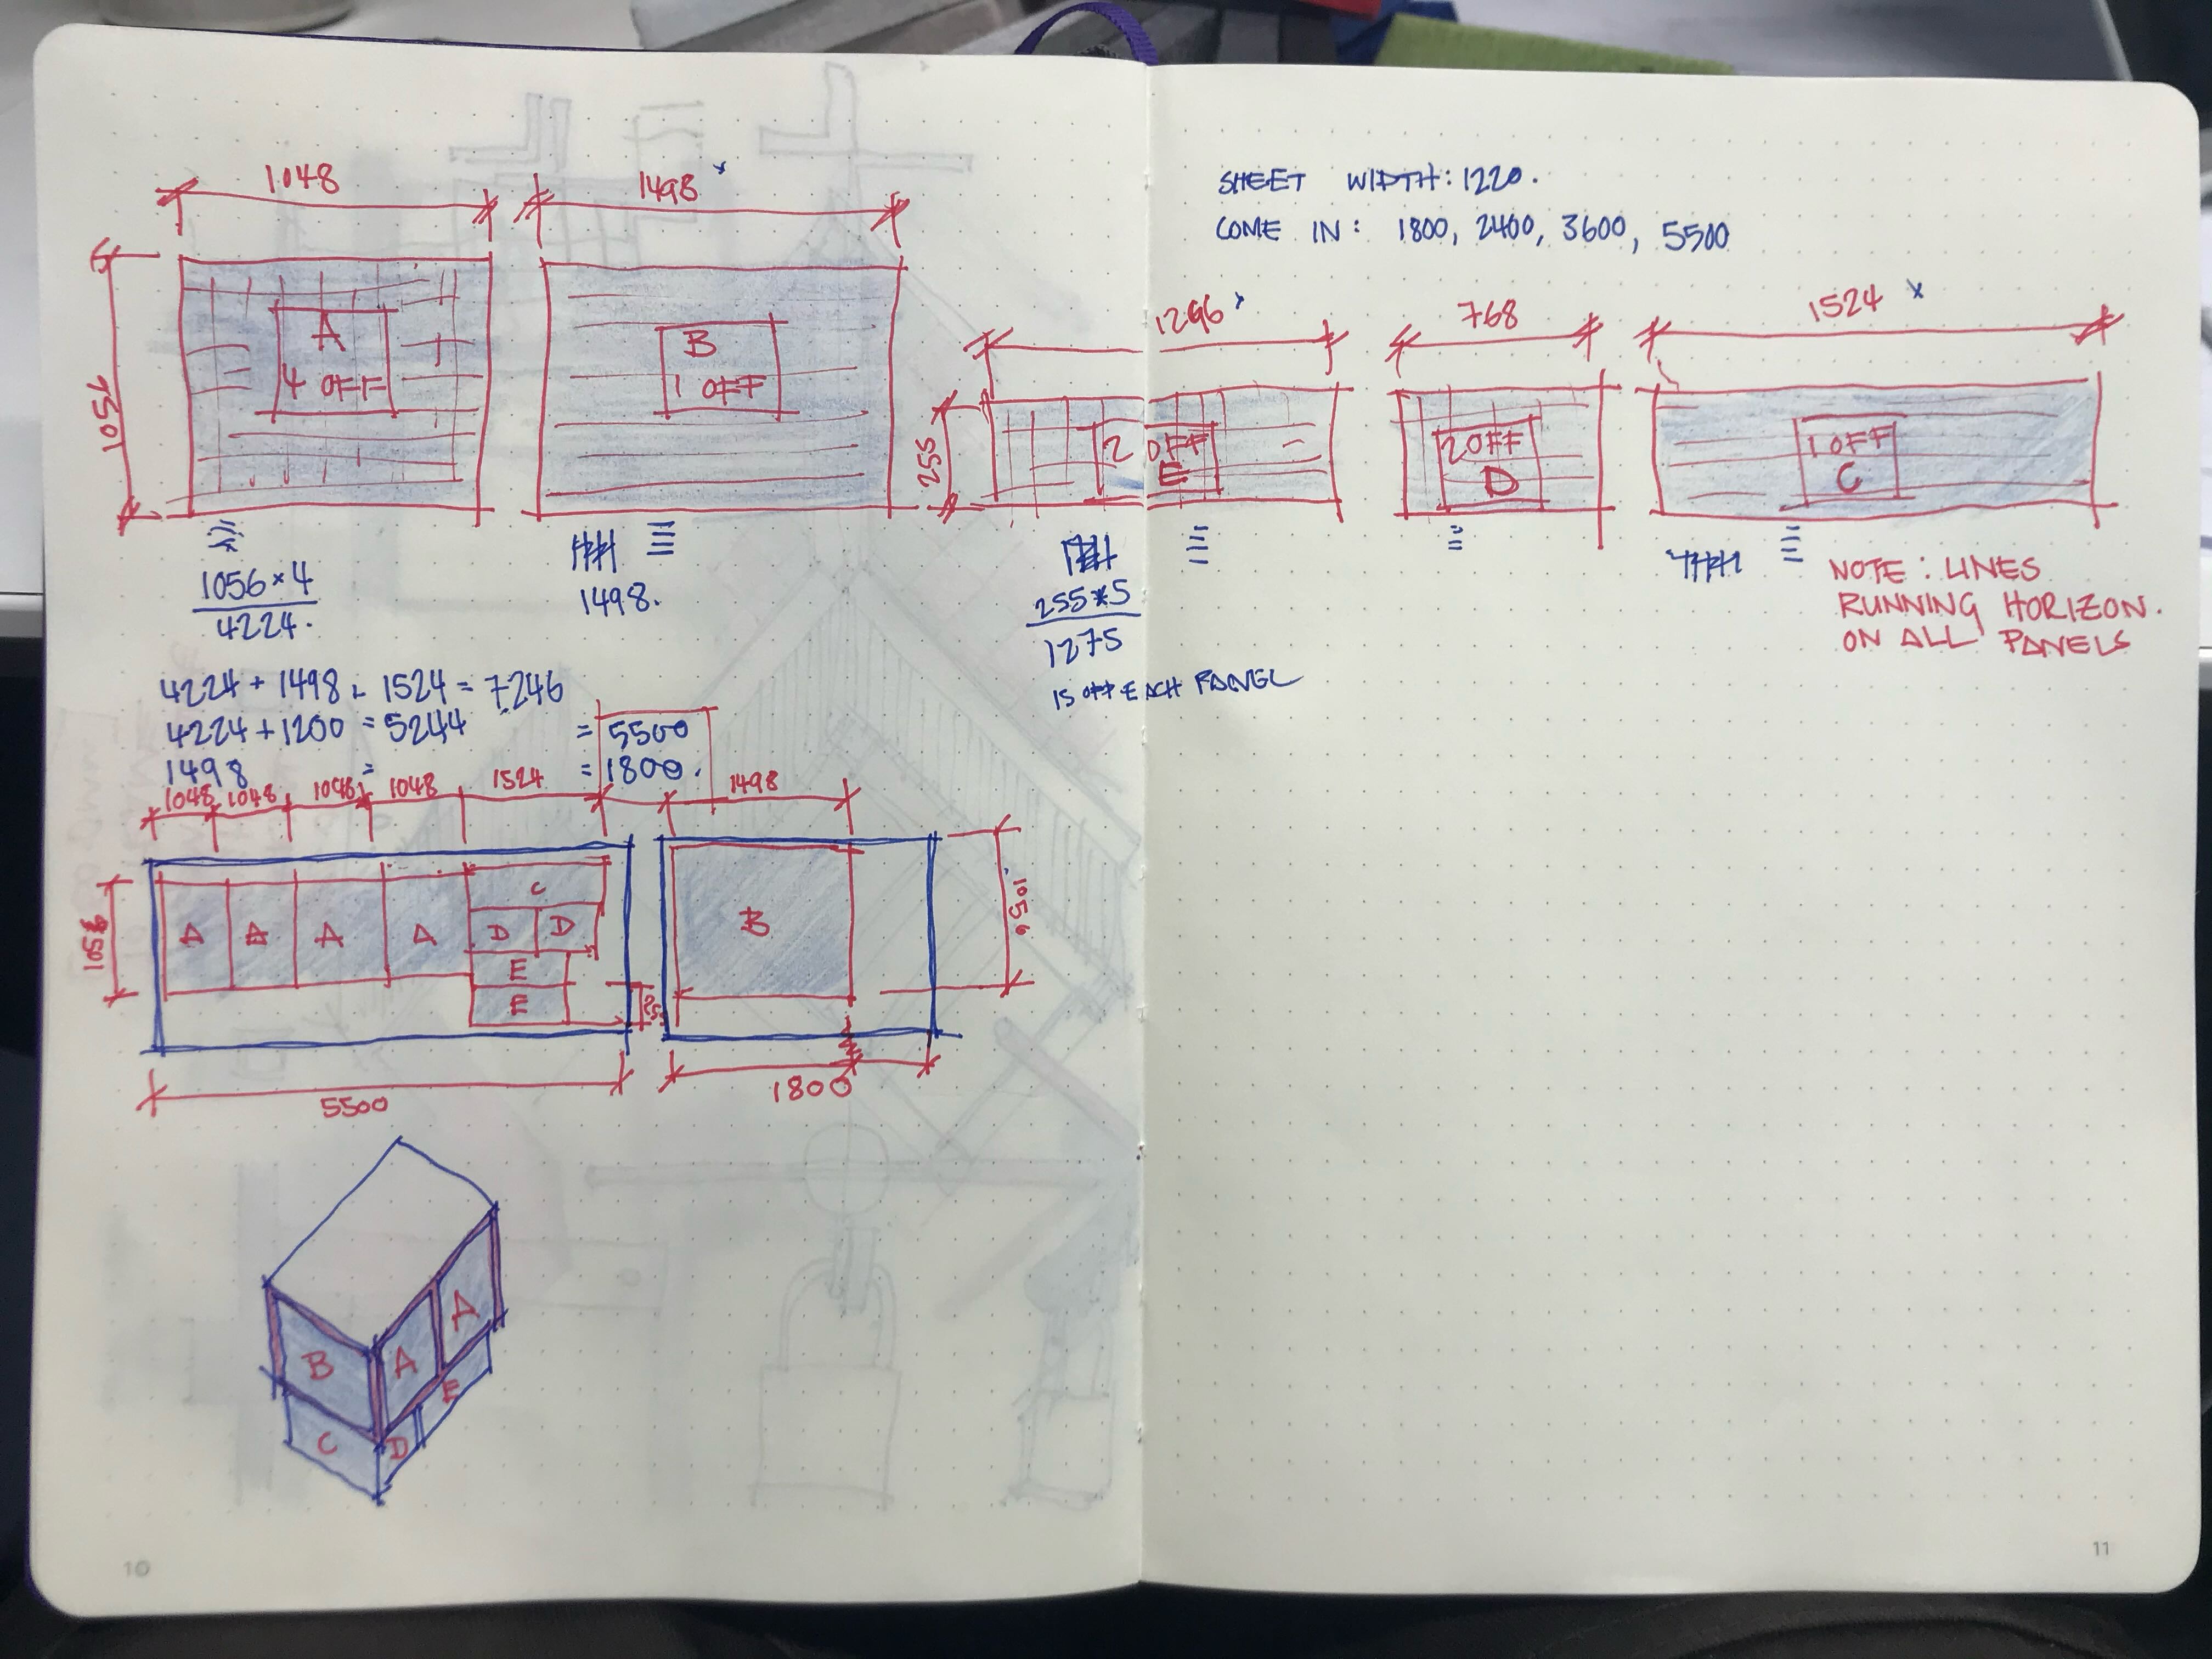 1048
1498 x
1056
A
4 OFF
B
1 OFF
1056×4
4224.
1498.
4224 + 1498 + 1524 = 7246
4224 + 1200 = 5244 = 5500
1498 = = 1800.
1048 1048 1048 1048 1524 1498
1056
A A A A
C
D D
E
E
B
1056
5500
1800
B A A
C D E
10
SHEET WIDTH: 1220.
COME IN: 1800, 2400, 3600, 5500
1296 x
768
1524 x
255
2 OFF
E
2 OFF
D
1 OFF
C
255*5
1275
IS OFF EACH PANEL
NOTE: LINES
RUNNING HORIZON.
ON ALL PANELS
11